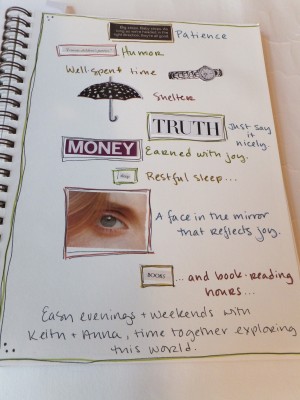 Patience
Humor
Well-spent time
Shelter
TRUTH
Just say
it
nicely.
MONEY
Earned with joy.
Restful sleep...
A face in the mirror
that reflects joy.
BOOKS
...and book-reading
hours...
Easy evenings + weekends with
Keith + Anna, time together exploring
this world.